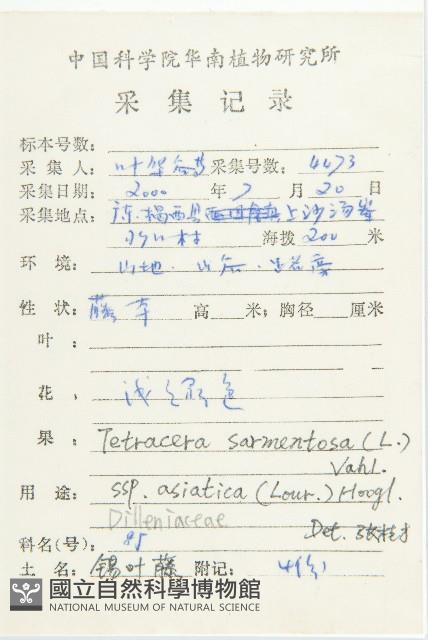 中国科学院华南植物研究所
采集记录
标本号数:
采集人: 叶华谷 采集号数: 4473
采集日期: 2000 年 7 月 20 日
采集地点: 揭西县 上沙汤
村 海拨 200 米
环境: 山地. 山谷.
性状: 藤本 高 米; 胸径 厘米
叶:
花, 浅 色
果: Tetracera sarmentosa (L.)
Vahl.
用途: ssp. asiatica (Lour.) Hoogl.
Dilleniaceae
Det.
科名(号): 85
土名: 锡叶藤 附记: 4份
國立自然科學博物館
NATIONAL MUSEUM OF NATURAL SCIENCE